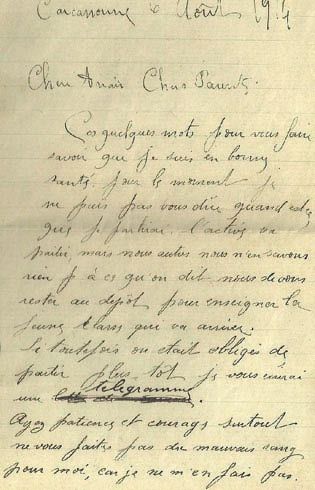 Carcassonne 6 Août 1914
Chère Anaïs Chers Parents.
Ces quelques mots pour vous faire
savoir que je suis en bonne
santé. pour le moment je
ne puis pas vous dire quand est-ce
que je partirai. l'active va
partir, mais nous autres nous n'en savons
rien à ce qu'on dit nous devons
rester au dépôt pour enseigner la
jeune classe que va arriver.
Si toutefois on était obligés de
partir plus tôt je vous
une télégramme.
Ayez patience et courage surtout
ne vous faites pas du mauvais sang
pour moi, car je ne m'en fais pas.